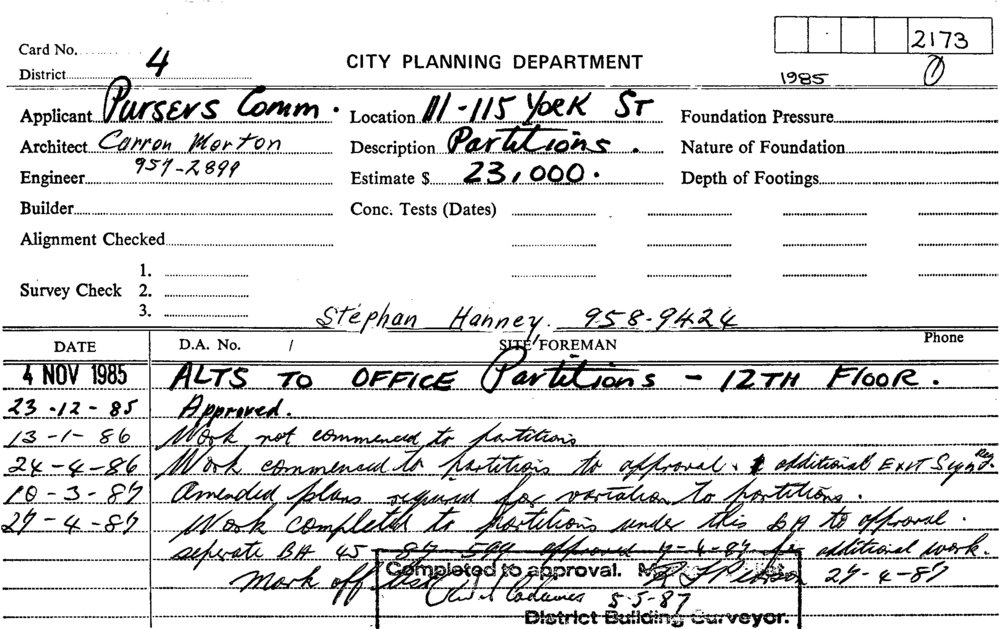 Card No.
2173
District 4
CITY PLANNING DEPARTMENT
1985
Applicant Pursers Comm.
Location 111-115 York St
Foundation Pressure
Architect Carron Morton
Description Partitions.
Nature of Foundation
Engineer 957-2899
Estimate $ 23,000.
Depth of Footings
Builder
Conc. Tests (Dates)
Alignment Checked
Survey Check
1.
2.
3.
Stephan Hanney. 958-9424
DATE D.A. No. / SITE FOREMAN Phone
4 NOV 1985 ALTS TO OFFICE Partitions - 12TH FLOOR.
23-12-85 Approved.
13-1-86 Work not commenced to partitions
24-4-86 Work commenced to partitions to approval. additional Exit Sign Req.
10-3-87 Amended plans required for variation to partitions.
27-4-87 Work completed to partitions under this BA to approval.
seperate BA 45-87-599 approved for additional work.
Mark off 27-4-87
Completed to approval.
5-5-87
District Building Surveyor.